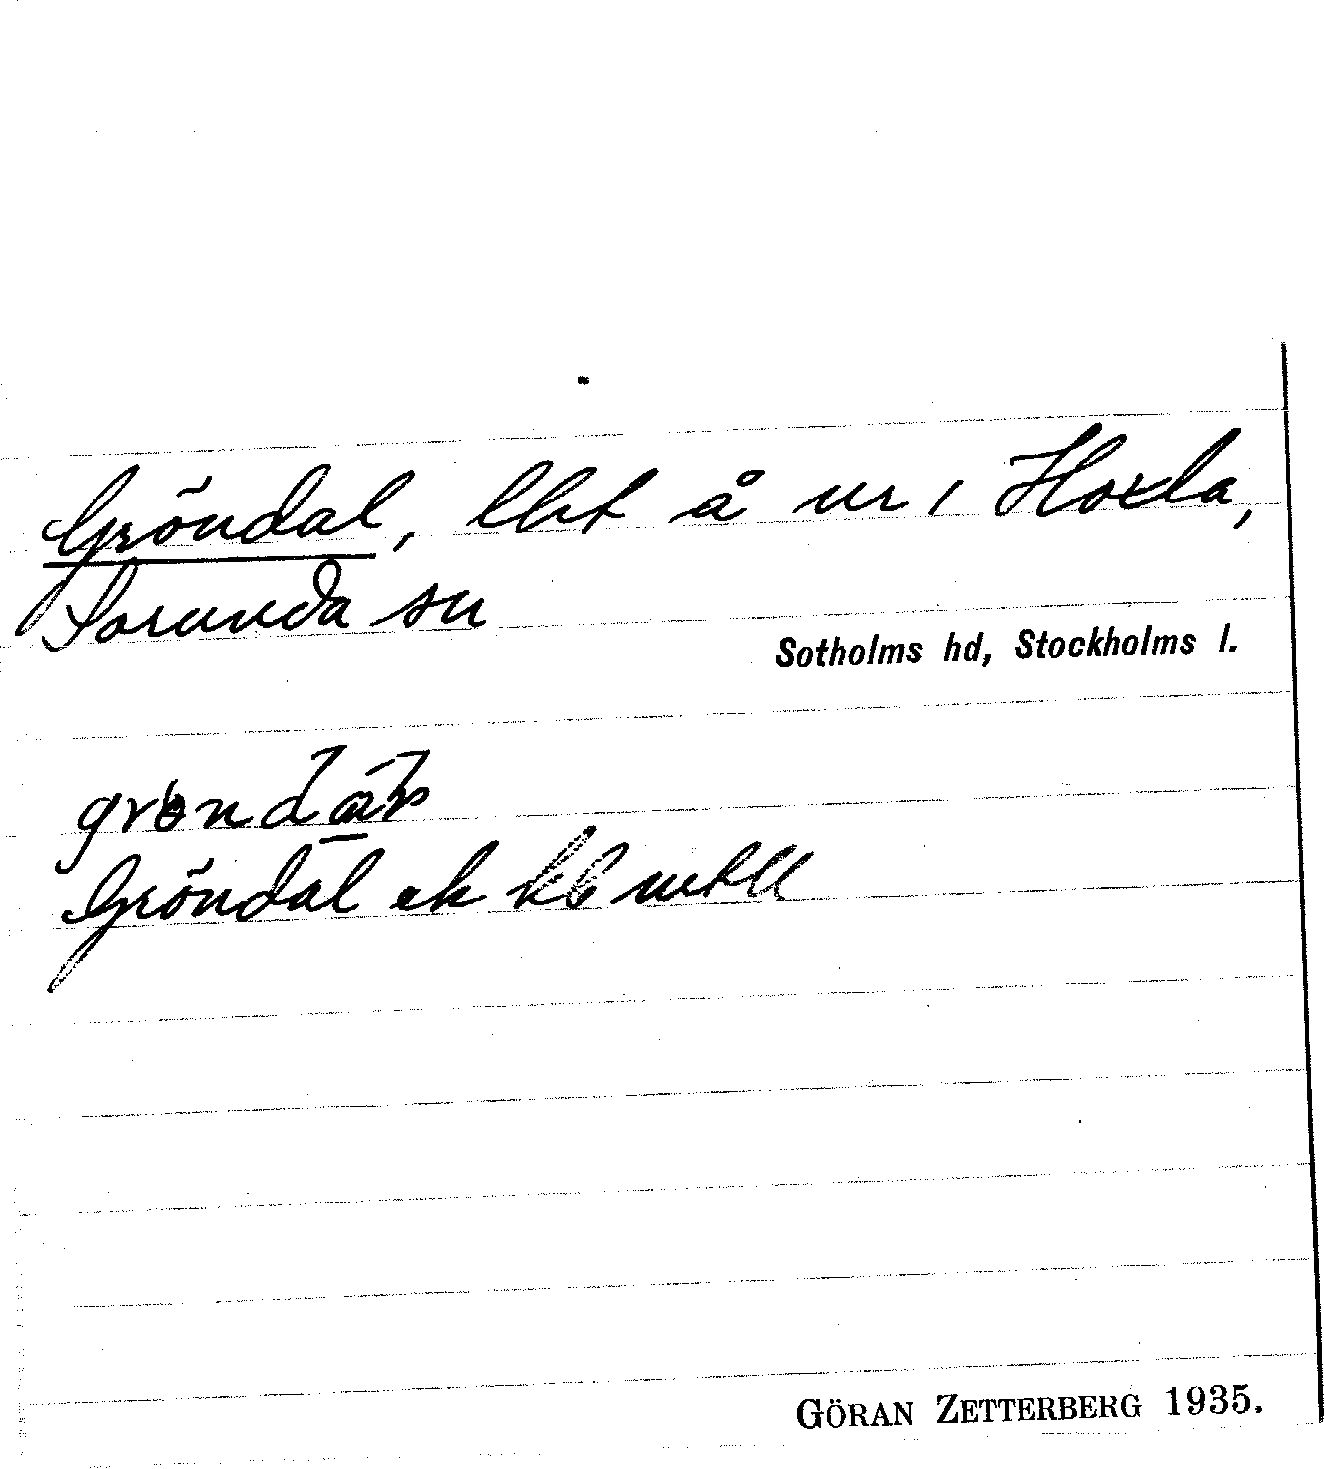 Gröndal, lht å nr 1 Hoxla,
Sorunda sn
Sotholms hd, Stockholms l.
Gröndal ek kb
GÖRAN ZETTERBERG 1935.